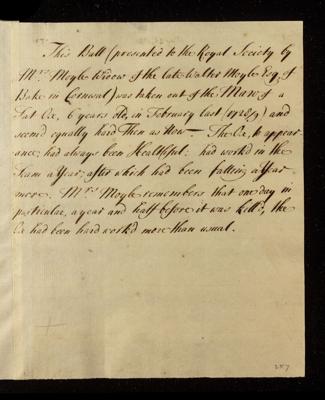 This Ball (presented to the Royal Society by
Mrs Moyle Widow of the late Walter Moyle Esq. of
Bake in Cornwal) was taken out of the Maw of a
Fat Ox, 6 years old, in February last (1728/9) and
seem'd equally hard Then as Now — The Ox, to appear-
ance, had always been Healthful: had work'd in the
Team a Year; after which had been fatting a Year
more. Mrs Moyle remembers that one day in
particular, a year and half before it was kill'd, the
Ox had been hard work'd more than usual.
257